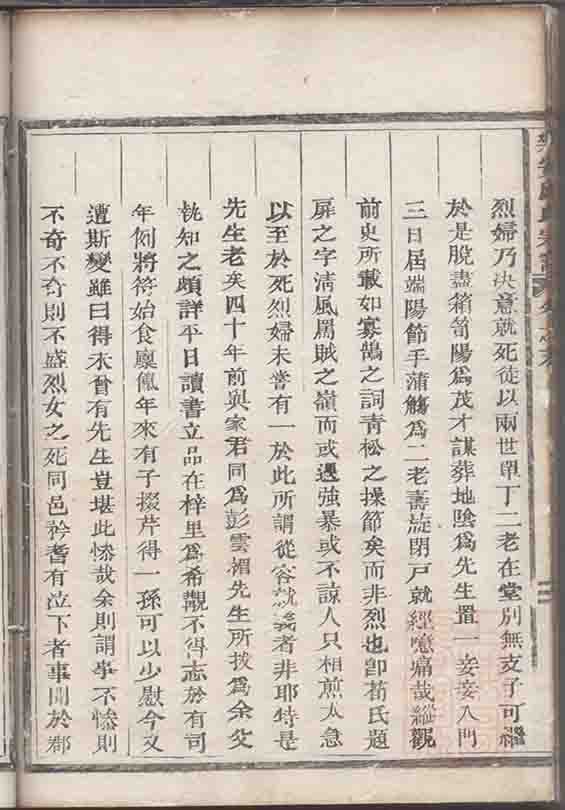 烈婦乃決意就死徒以兩世單丁二老在堂別無支子可繼
於是脫盡箱笥陽為茂才謀葬地陰為先生置一妾妾入門
三日屆端陽節手蒲觴為二老壽旋閉戶就經噫痛哉縱觀
前史所載如寡鵠之詞青松之操節矣而非烈也卽荀氏題
扉之字清風罵賊之嶺而或遇強暴或不諒人只相煎太急
以至於死烈婦未嘗有一於此所謂從容就義者非耶特是
先生老矣四十年前與家君同為彭雲楣先生所拔為余父
執知之頗詳平日讀書立品在梓里為希覯不得志於有司
年例將符始食廩餼年來有子掇芹得一孫可以少慰今又
遭斯變雖曰得未曾有先生豈堪此慘哉余則謂事不慘則
不奇不奇則不盛烈女之死同邑矜耆有泣下者事聞於郡